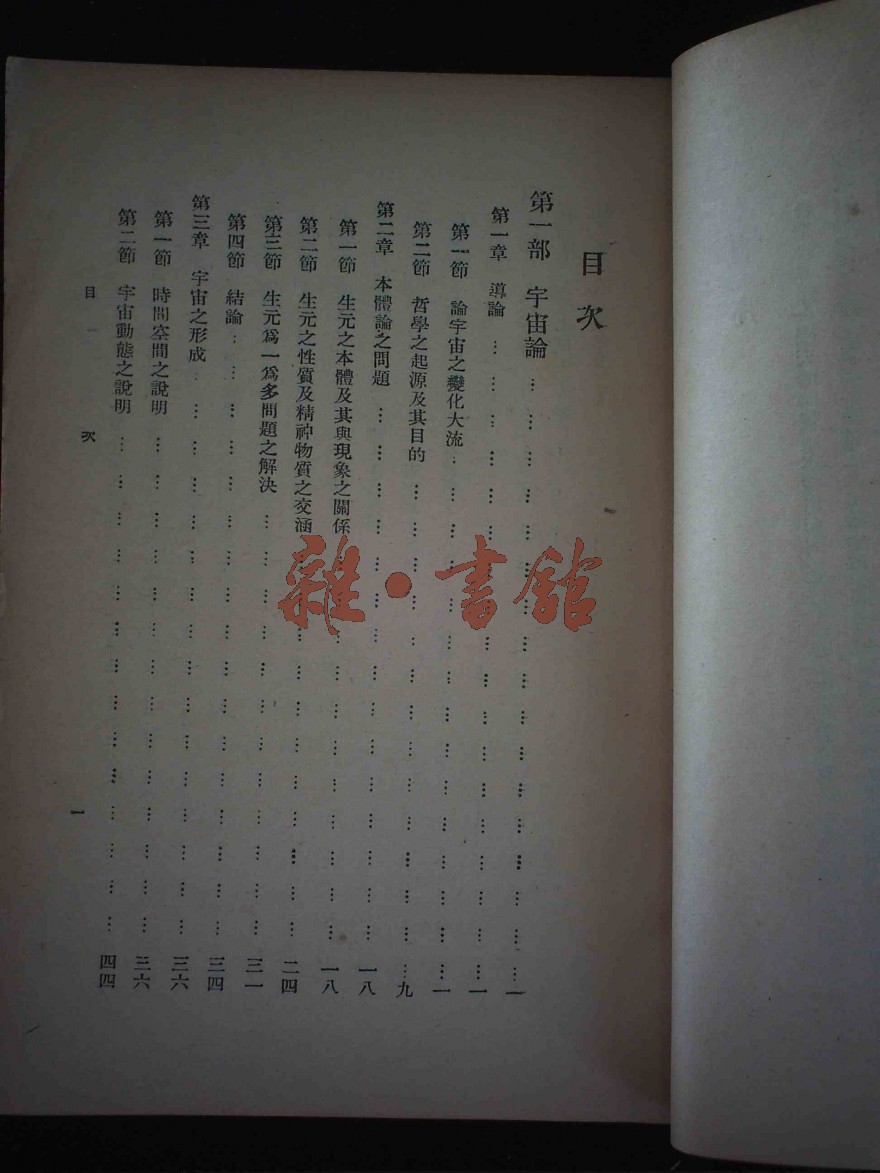 目次
第一部　宇宙論………………………………………一
第一章　導論………………………………………一
第一節　論宇宙之變化大流………………………………………一
第二節　哲學之起源及其目的………………………………………九
第二章　本體論之問題………………………………………一八
第一節　生元之本體及其與現象之關係………………………………………一八
第二節　生元之性質及精神物質之交涵………………………………………二四
第三節　生元爲一爲多問題之解決………………………………………三一
第四節　結論………………………………………三四
第三章　宇宙之形成………………………………………三六
第一節　時間空間之說明………………………………………三六
第二節　宇宙動態之說明………………………………………四四
目次
一
雜·書館